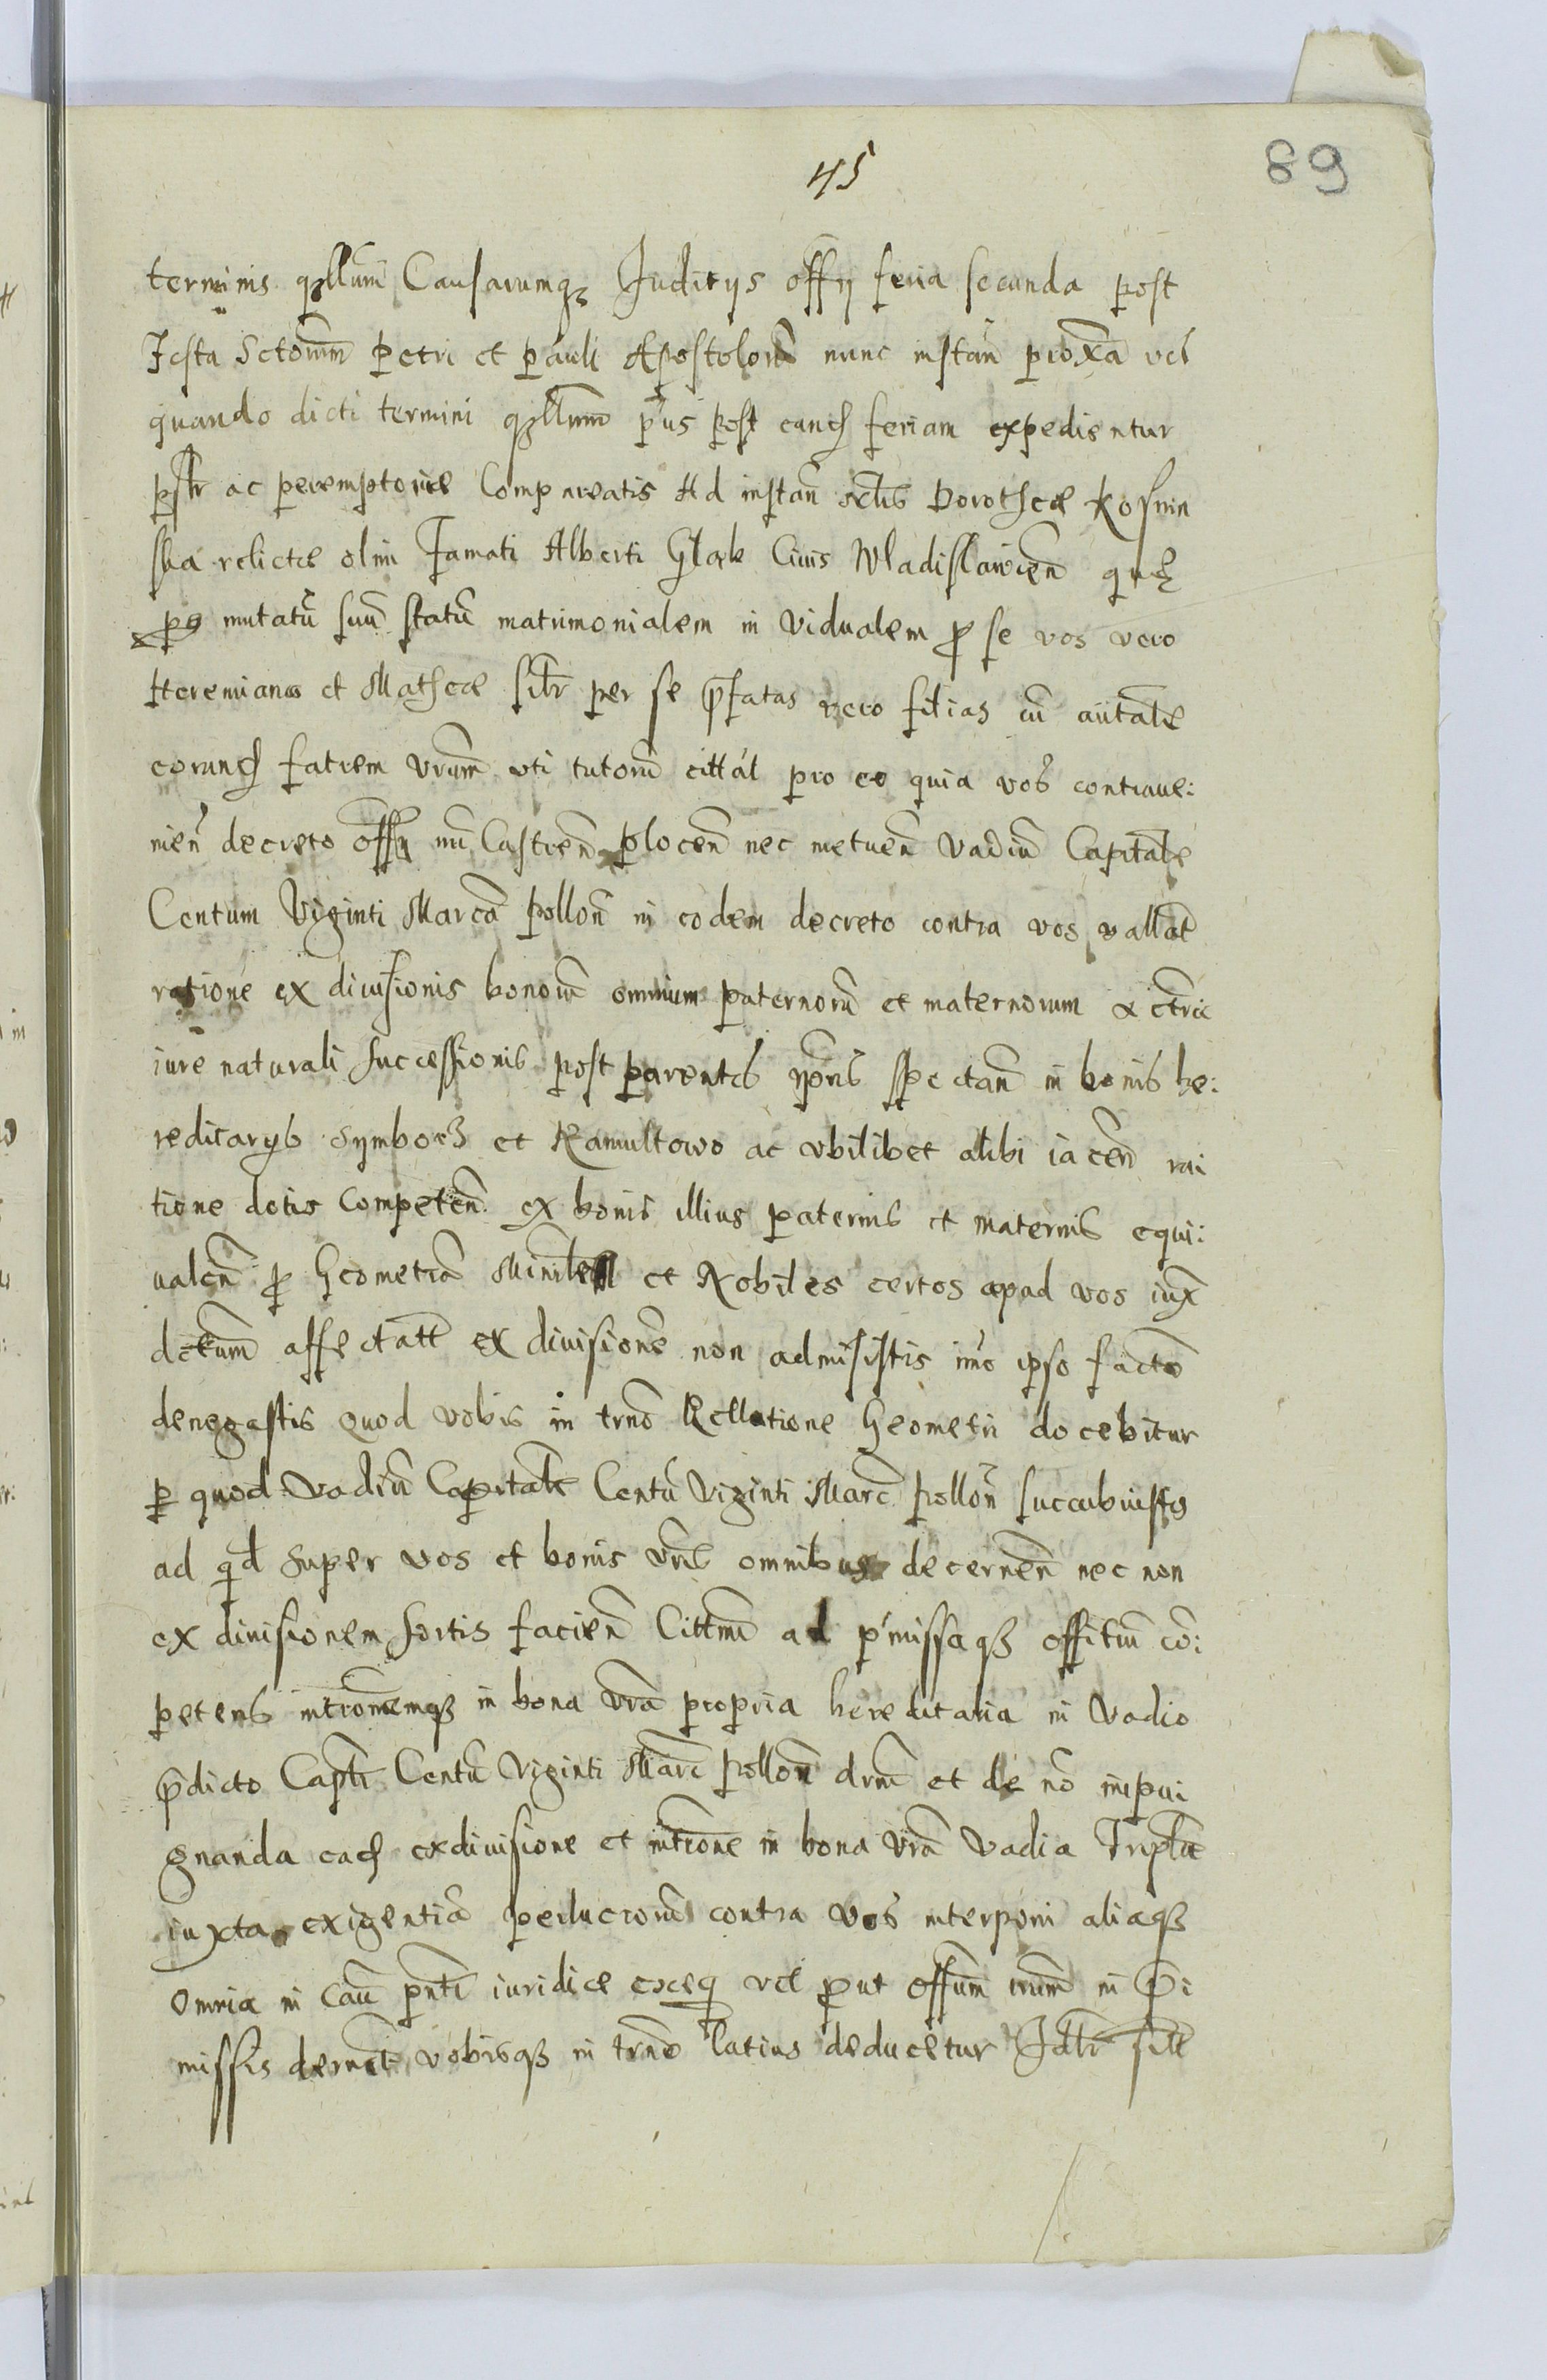 45
89
terminis qrllum̃ Causarumqȝ Juditijs offij feria secunda post
Festa Sctorum̃ Petri et Pauli Apostolorũ nunc instañ proxã vel
quando dicti termini qrllum̃ prius post eand feriam expedientur
pstr ac peremptorie Compareatis Ad instañ Dorotheæ Kosmin
ska relictæ olim Famati Alberti Glok Ciuis Wladislauieñ quæ
mutatũ suũ statũ matrimonialem in Vidualem p̱ se vos vero
Heremianas et Matheæ silr per se p̃fatas vero filias cũ autate
eorund fatrem vrum̃ uti tutorũ cittat pro eo quia vos contraue:
nieñ decreto offij nri Castreñ Ploceñ nec metueñ Vadiũ Capitale
Centum Viginti Marcã pollõn in eodem decreto contra vos vallat̃
ratione ex diuisionis bonorũ omnium paternorũ et maternorum
iure naturali successionis post parentes ipsius spectañ in bonis he:
reditarijs Symborz et Ramultowo ac vbilibet alibi iaceñ rai
tione dotis Competeñ ex bonis illius paternis et maternis equi:
ualeñ p̱ Geometrã et Nobiles certos apud vos iux̃
dctum̃ affectatt ex diuisione non admisistis imo ipso facto
denegastis quod vobis in trno Rellatione Geometri docebitur
p̱ quod Vadiũ Capitale Centũ Viginti Marc̃ pollõn succubuistis
ad qd super vos et bonis vris omnibus decerneñ nec non
ex diuisionem sortis facieñ Cittmi ad p̃missaqȝ offitiũ cõ:
petens intromemqȝ in bona vrã propria hereditaria in Vadio
p̃dicto Captl Centũ Viginti Marc̃ pollõn drni et de nõ inpui
gnanda ead exdiuisione et intrõne in bona vrã Vadia Tripla
iuxta exigentiã perlucrorũ contra Vos interponi aliaqȝ
omnia in Caũ pnti iuridice exeq vel prout offum̃ nrum̃ in p̃i
missis dernet vobisqȝ in trno latius deducetur Idtr sitt